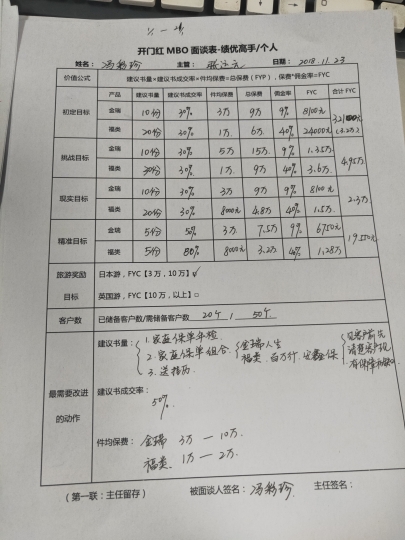 开门红 MBO 面谈表-绩优高手/个人
姓名： 冯彩珍 主管： 日期： 2018.11.23
价值公式 建议书量×建议书成交率×件均保费=总保费（FYP），保费*佣金率=FYC
产品 建议书量 建议书成交率 件均保费 总保费 佣金率 FYC 合计 FYC
初定目标 金瑞 10份 30% 3万 9万 9% 8100元
福类 20份 30% 1万 6万 40% 24000元 (3.2万)
挑战目标 金瑞 10份 30% 5万 15万 9% 1.35万 4.95万
福类 30份 30% 1万 9万 40% 3.6万
现实目标 金瑞 10份 30% 3万 9万 9% 8100元 2.3万
福类 20份 30% 8000元 4.8万 40% 1.5万
精准目标 金瑞 5份 50% 3万 7.5万 9% 6750元
福类 5份 80% 8000元 3.2万 40% 1.28万
旅游奖励目标 日本游，FYC【3 万，10 万】√
英国游，FYC【10 万，以上】□
客户数 已储备客户数/需储备客户数 20个 / 50个
最需要改进的动作
建议书量： 1. 家庭保单年检
2. 家庭保单组合 金瑞人生
福类
3. 送
建议书成交率：
50%
件均保费： 金瑞 3万 — 10万
福类 1万 — 2万
（第一联：主任留存） 被面谈人签名： 冯彩珍 主任签名：